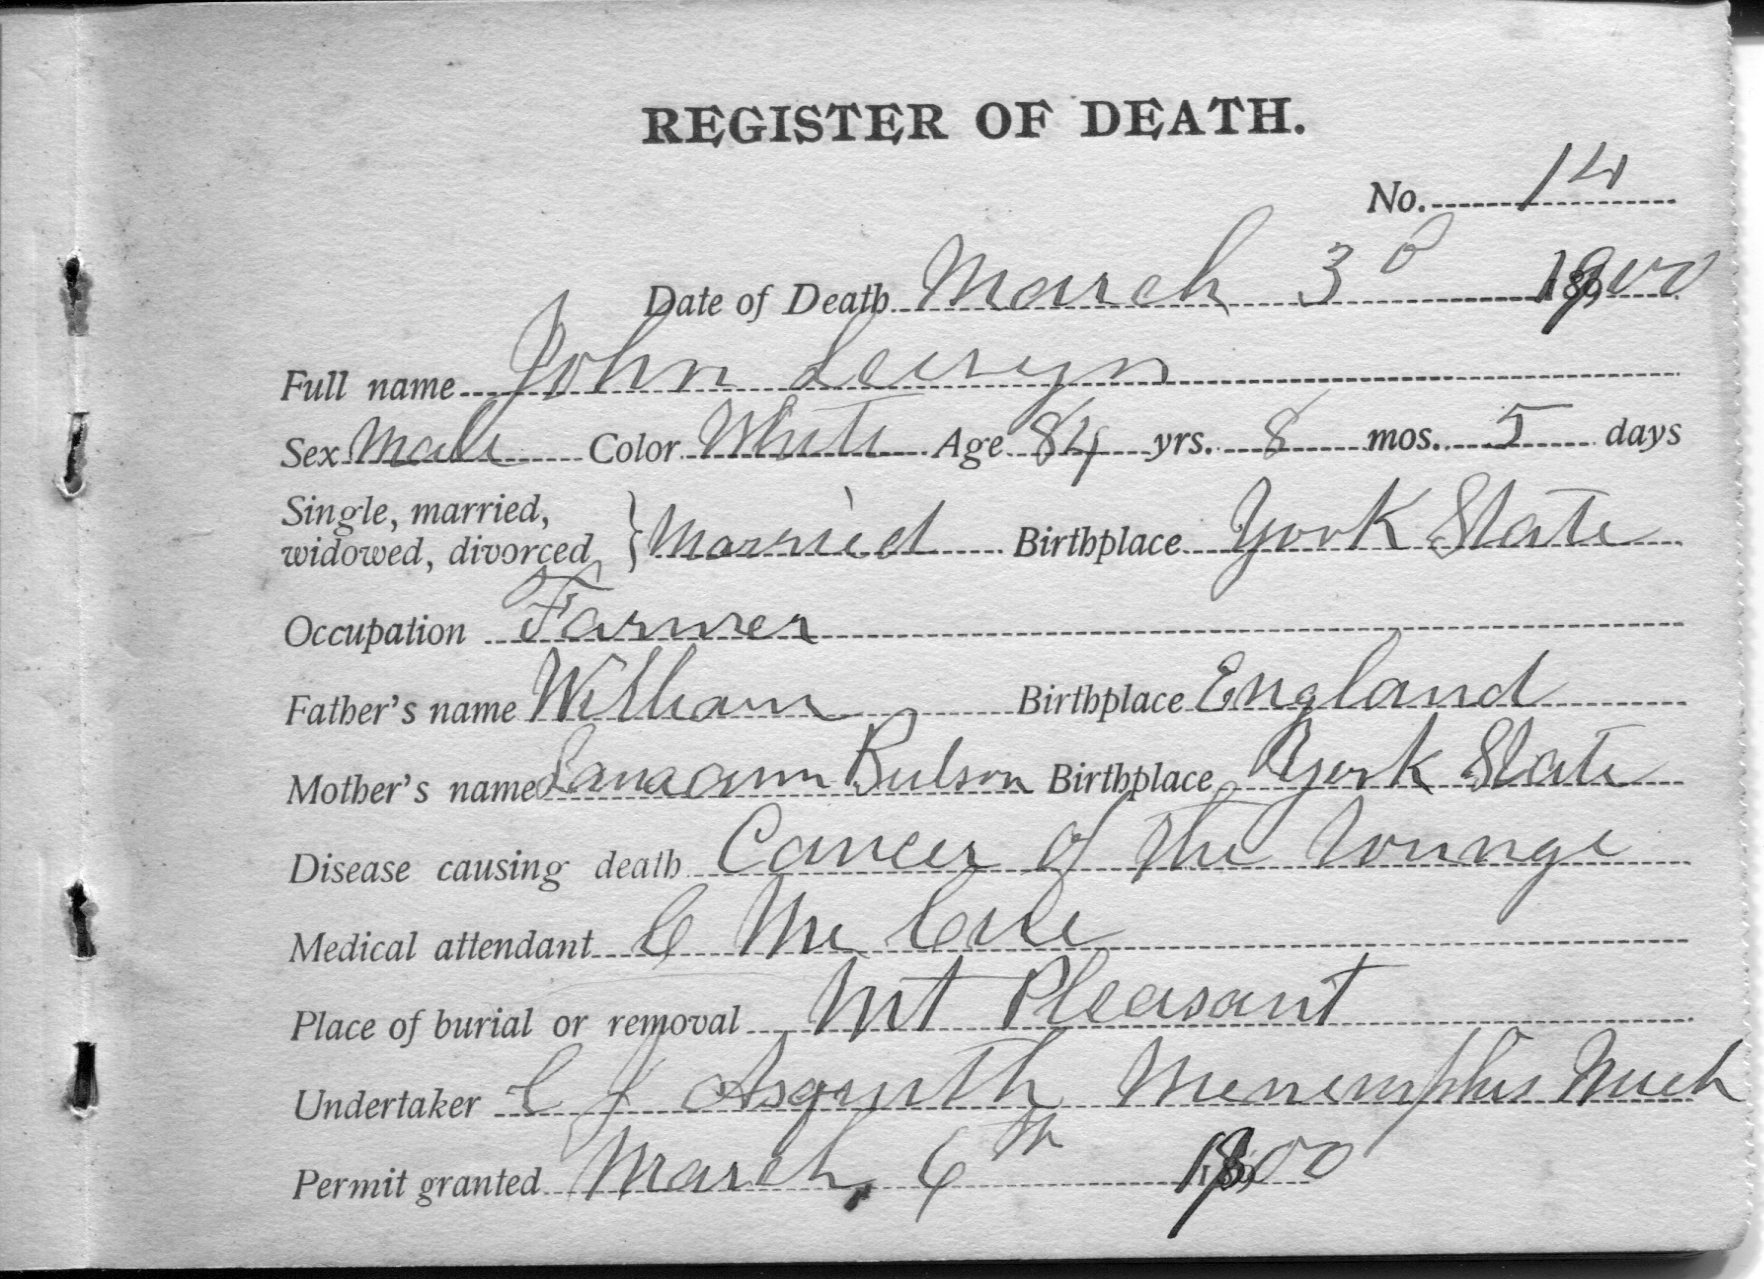 REGISTER OF DEATH.
No. 14
Date of Death March 3d 1900
Full name John
Sex Male Color White Age 84 yrs. 8 mos. 5 days
Single, married,
widowed, divorced } Married Birthplace York State
Occupation Farmer
Father's name William Birthplace England
Mother's name Bulson Birthplace York State
Disease causing death Cancer of the tounge
Medical attendant C
Place of burial or removal Mt Pleasant
Undertaker C J
Permit granted March 6th 1900